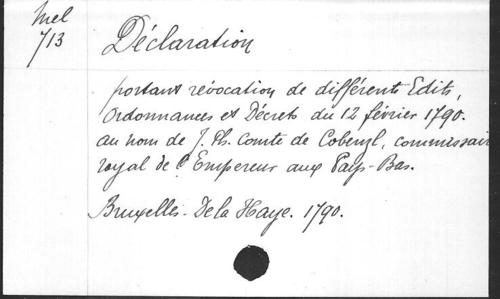 Mel
713
Déclaration
portant révocation de différents Edits,
Ordonnances et Décrets du 12 février 1790.
au nom de J. Ph. Comte de Cobenzl, commissair
royal de l'Empereur aux Pays-Bas.
Bruxelles - De la Haye. 1790.